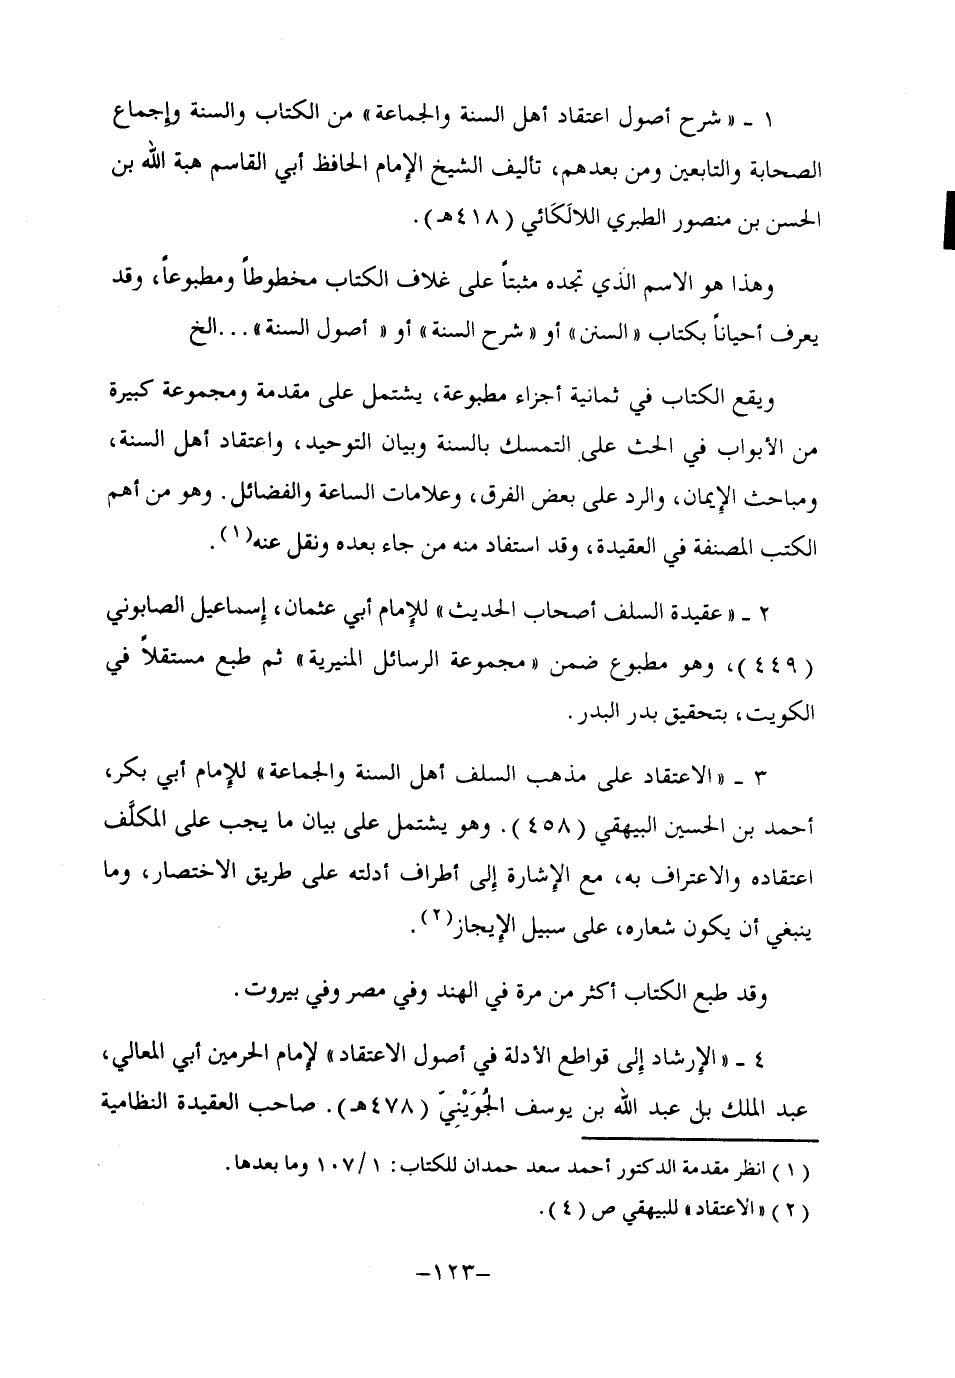 ١ - « شرح أصول اعتقاد أهل السنة والجماعة» من الكتاب والسنة وإجماع
الصحابة والتابعين ومن بعدهم، تأليف الشيخ الإمام الحافظ أبي القاسم هبة الله بن
الحسن بن منصور الطبري اللالَكَائي (٤١٨هـ).
وهذا هو الاسم الذي تجده مثبتاً على غلاف الكتاب مخطوطاً ومطبوعاً، وقد
يعرف أحياناً بكتاب «السنن» أو « شرح السنة» أو « أصول السنة» ...الخ
ويقع الكتاب في ثمانية أجزاء مطبوعة، يشتمل على مقدمة ومجموعة كبيرة
من الأبواب في الحث على التمسك بالسنة وبيان التوحيد، واعتقاد أهل السنة،
ومباحث الإيمان، والرد على بعض الفرق، وعلامات الساعة والفضائل. وهو من أهم
الكتب المصنفة في العقيدة، وقد استفاد منه من جاء بعده ونقل عنه(١).
٢ - « عقيدة السلف أصحاب الحديث» للإمام أبي عثمان، إسماعيل الصابوني
(٤٤٩)، وهو مطبوع ضمن «مجموعة الرسائل المنيرية» ثم طبع مستقلاً في
الكويت، بتحقيق بدر البدر.
٣ - «الاعتقاد على مذهب السلف أهل السنة والجماعة» للإمام أبي بكر،
أحمد بن الحسين البيهقي (٤٥٨). وهو يشتمل على بيان ما يجب على المكلَّف
اعتقاده والاعتراف به، مع الإشارة إلى أطراف أدلته على طريق الاختصار، وما
ينبغي أن يكون شعاره، على سبيل الإيجاز(٢).
وقد طبع الكتاب أكثر من مرة في الهند وفي مصر وفي بيروت.
٤ - «الإرشاد إلى قواطع الأدلة في أصول الاعتقاد» لإمام الحرمين أبي المعالي،
عبد الملك بل عبد الله بن يوسف الجُوَيْنِيّ (٤٧٨هـ). صاحب العقيدة النظامية
(١) انظر مقدمة الدكتور أحمد سعد حمدان للكتاب: ١٠٧/١ وما بعدها.
(٢) «الاعتقاد» للبيهقي ص (٤).
-١٢٣-